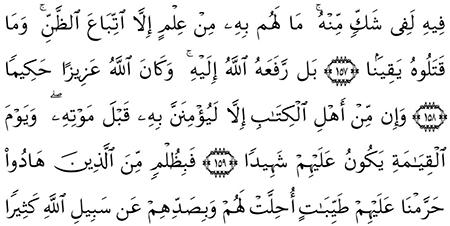 فِيهِ لَفِى شَكٍّ مِّنْهُ ۚ مَا لَهُم بِهِۦ مِنْ عِلْمٍ إِلَّا ٱتِّبَاعَ ٱلظَّنِّ ۚ وَمَا
قَتَلُوهُ يَقِينًۢا ﴿١٥٧﴾ بَل رَّفَعَهُ ٱللَّهُ إِلَيْهِ ۚ وَكَانَ ٱللَّهُ عَزِيزًا حَكِيمًا
﴿١٥٨﴾ وَإِن مِّنْ أَهْلِ ٱلْكِتَـٰبِ إِلَّا لَيُؤْمِنَنَّ بِهِۦ قَبْلَ مَوْتِهِۦ ۖ وَيَوْمَ
ٱلْقِيَـٰمَةِ يَكُونُ عَلَيْهِمْ شَهِيدًا ﴿١٥٩﴾ فَبِظُلْمٍ مِّنَ ٱلَّذِينَ هَادُوا۟
حَرَّمْنَا عَلَيْهِمْ طَيِّبَـٰتٍ أُحِلَّتْ لَهُمْ وَبِصَدِّهِمْ عَن سَبِيلِ ٱللَّهِ كَثِيرًا